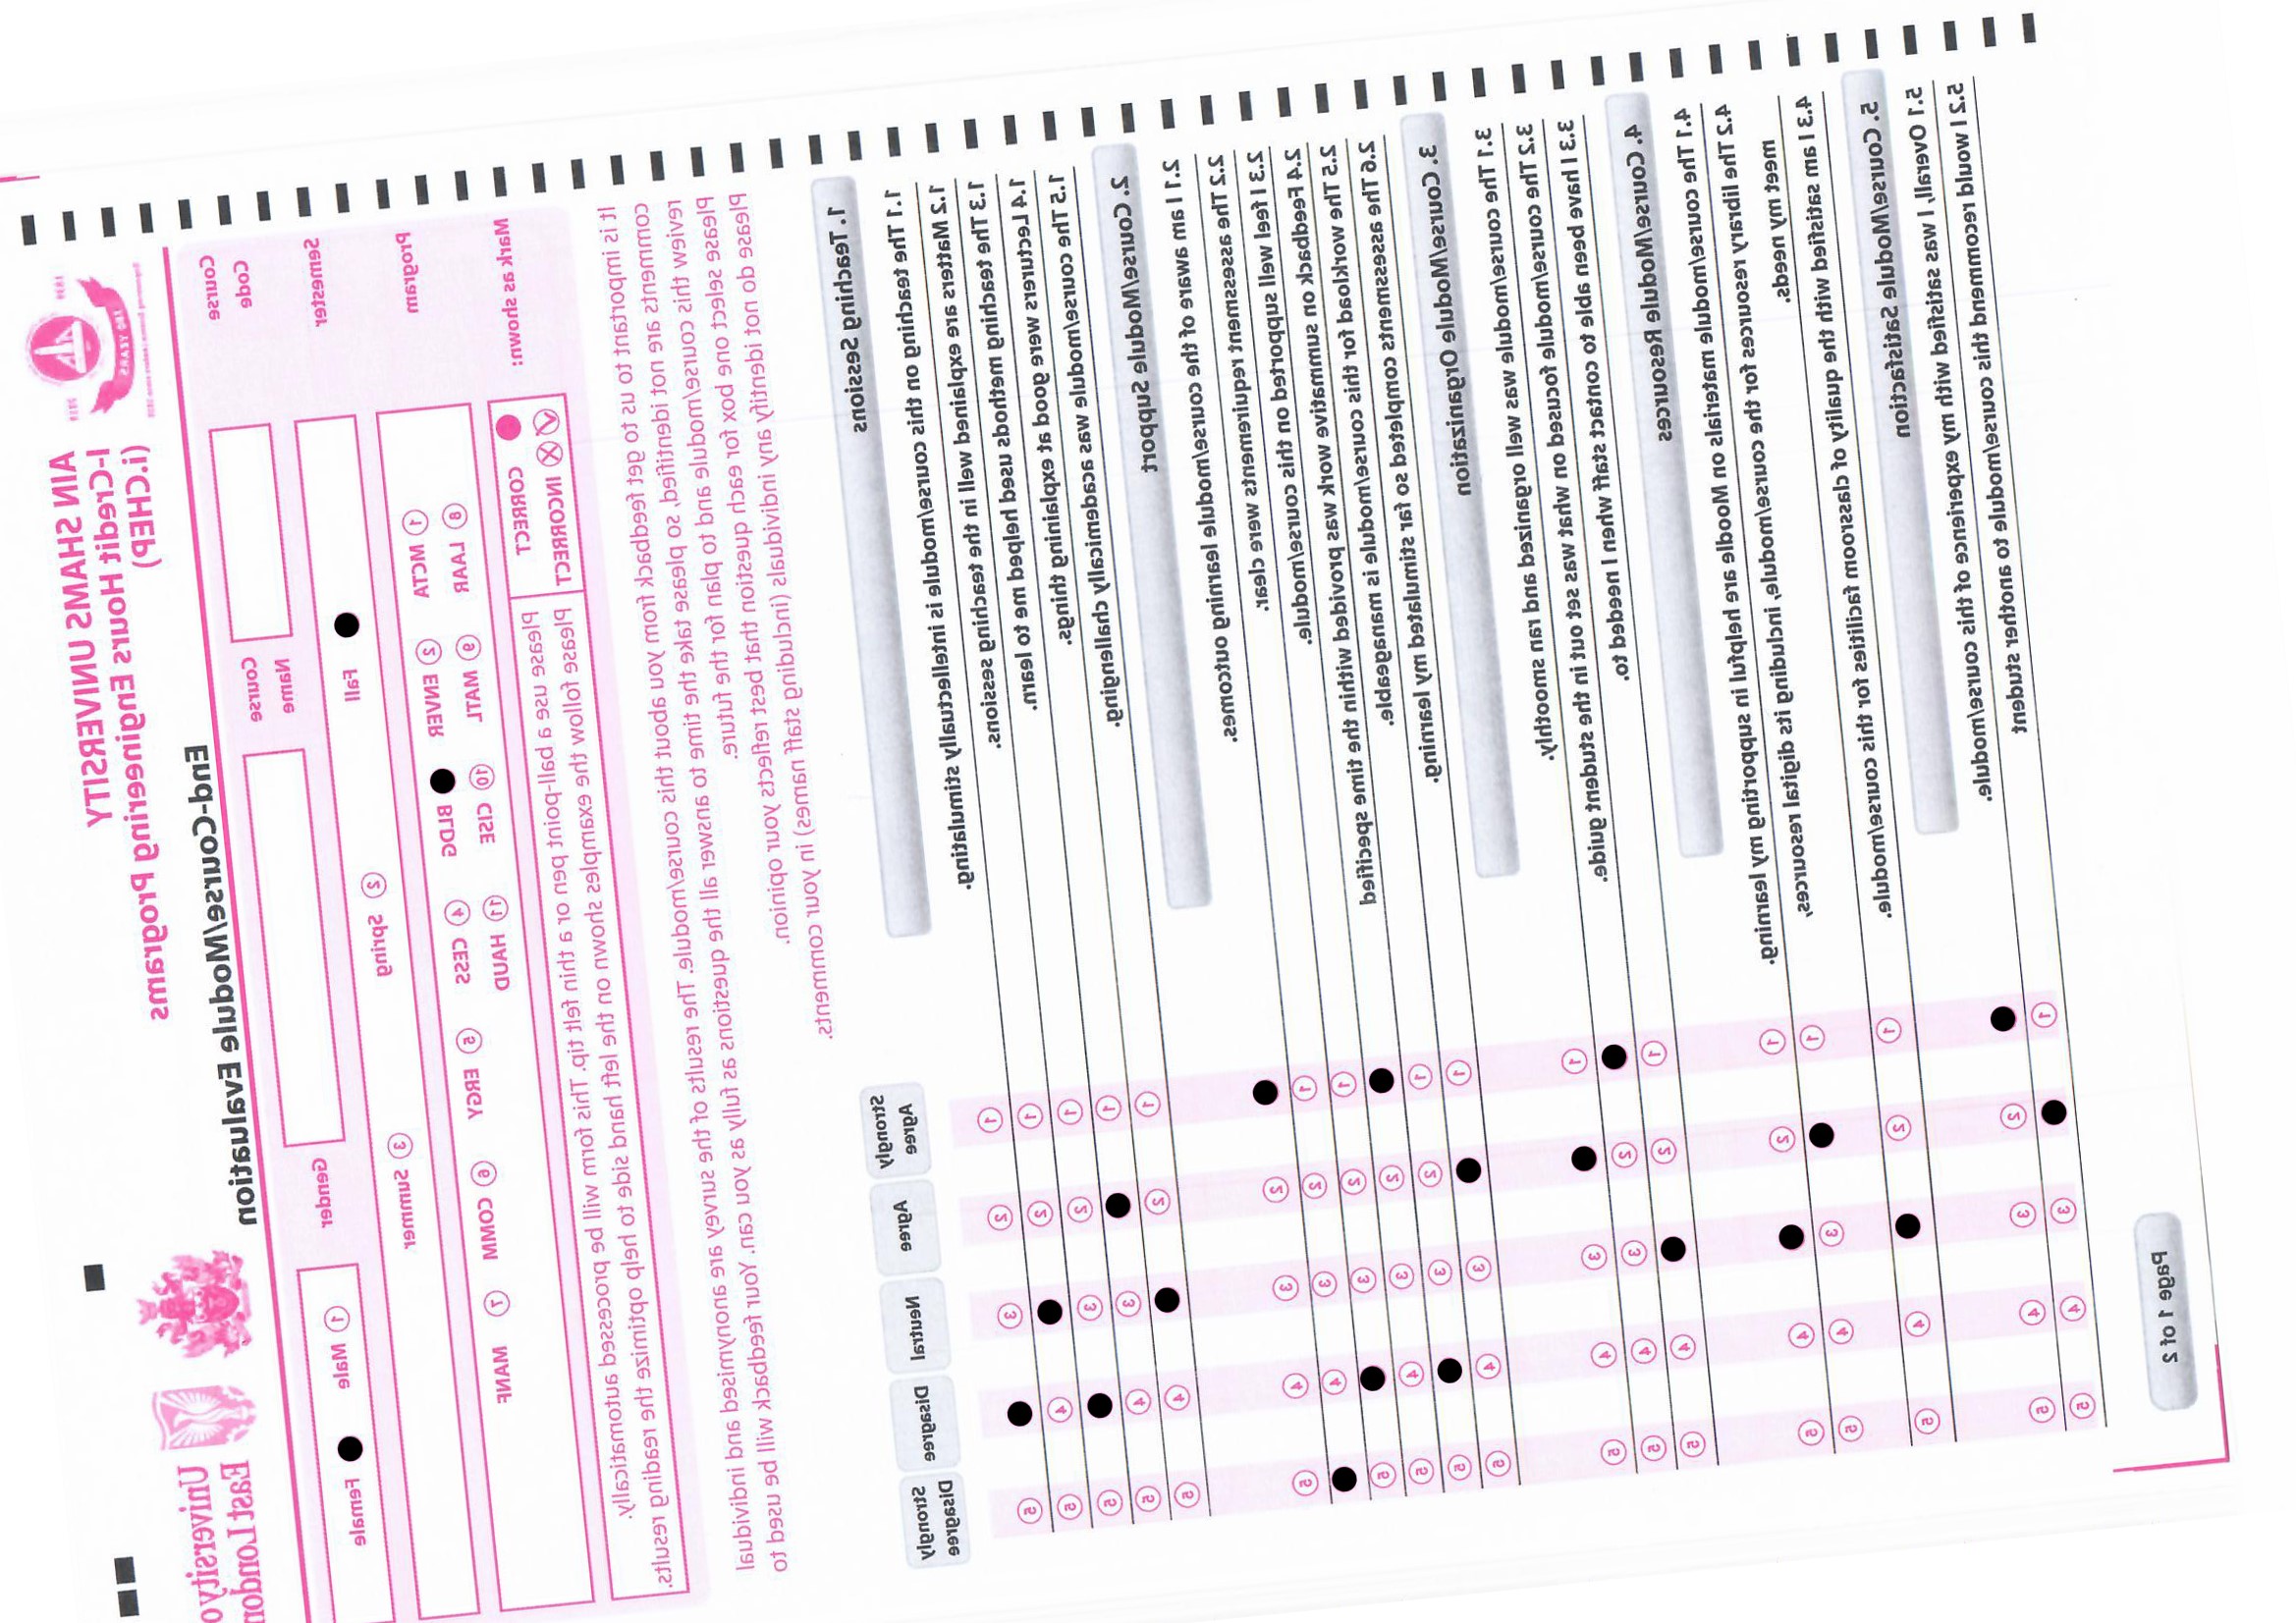 AIN SHAMS UNIVERSITY
I-Credit Hours Engineering Programs
(i.CHEP)
University o
East London
End-Course/Module Evaluation
Course Code
Course Name
Gender
1 Male
Female
Semester
Fall
2 Spring
3 Summer
Program
1 MCTA 2 ENVER BLDG 4 CESS 5 ERGY 6 COMM 7 MANF
8 LAAR 9 MATL 10 CISE 11 HAUD
Mark as shown:
CORRECT
INCORRECT
Please use a ball-point pen or a thin felt tip. This form will be processed automatically.
please follow the examples shown on the left hand side to help optimize the reading results.
It is important to us to get feedback from you about this course/module. The results of the survey are anonymised and individual
comments are not identified, so, please take the time to answer all the questions as fully as you can. Your feedback will be used to
review this course/module and to plan for the future.
Please select one box for each question that best reflects your opinion.
Please do not identify any individuals (including staff names) in your comments.
1. Teaching Sessions
Strongly Agree
Agree
Neutral
Disagree
Strongly Disagree
1.1 The teaching on this course/module is intellectually stimulating. 1 2 3 5
1.2 Matters are explained well in the teaching sessions. 1 2 4 5
1.3 The teaching methods used helped me to learn. 1 2 3 5
1.4 Lecturers were good at explaining things. 1 3 4 5
1.5 The course/module was academically challenging. 1 2 4 5
2. Course/Module Support
2.1 I am aware of the course/module learning outcomes. 2 3 4 5
2.2 The assessment requirements were clear. 1 2 3 4
2.3 I feel well supported on this course/module. 1 2 3 5
2.4 Feedback on summative work was provided within the time specified 2 3 4 5
2.5 The workload for this course/module is manageable. 1 2 3 5
2.6 The assessments completed so far stimulated my learning. 1 3 4 5
3. Course/Module Organization
3.1 The course/module was well organized and ran smoothly. 1 3 4 5
3.2 The course/module focused on what was set out in the student guide. 2 3 4 5
3.3 I have been able to contact staff when I needed to. 1 2 4 5
4. Course/Module Resources
4.1 The course/module materials on Moodle are helpful in supporting my learning. 1 2 4 5
4.2 The library resources for the course/module, including its digital resources,
meet my needs. 1 3 4 5
4.3 I am satisfied with the quality of classroom facilities for this course/module. 1 2 4 5
5. Course/Module Satisfaction
5.1 Overall, I was satisfied with my experience of this course/module. 2 3 4 5
5.2 I would recommend this course/module to another student 1 3 4 5
Page 1 of 2